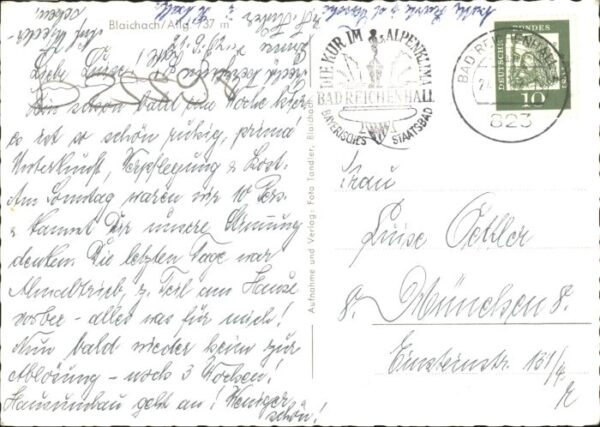 Blaichach/Allg. 737 m
Liebe Luise!
Bin schon bald eine Woche hier
es ist so schön ruhig, prima
Unterkunft, Verpflegung u. Kost.
Am Sonntag waren wir 10 Pers.
kannst Dir unsere Stimmung
denken. Die letzten Tage war
Almabtrieb, z. Teil am Hause
vorbei - alles was für mich!
Nun bald wieder heim zur
Ablösung - noch 3 Wochen!
Hausumbau geht an! Weniger
schön!
Aufnahme und Verlag: Foto Tandler, Blaichach
DIE KUR IM ALPENKLIMA
BAD REICHENHALL
BAYERISCHES STAATSBAD
BAD REICHENHALL
823
DEUTSCHE BUNDESPOST
10
Frau
Luise
8. München 8.
Einsteinstr. 151/4
r